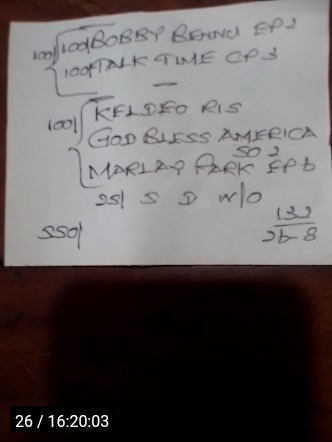 100/ 100/ BOBBY BENNU EP2
100/ TALK TIME CP3
—
100/ KELDEO RIS
GOD BLESS AMERICA
SO 2
MARLAY PARK EP6
25/ S D W/O
132
550/
26-8
26 / 16:20:03